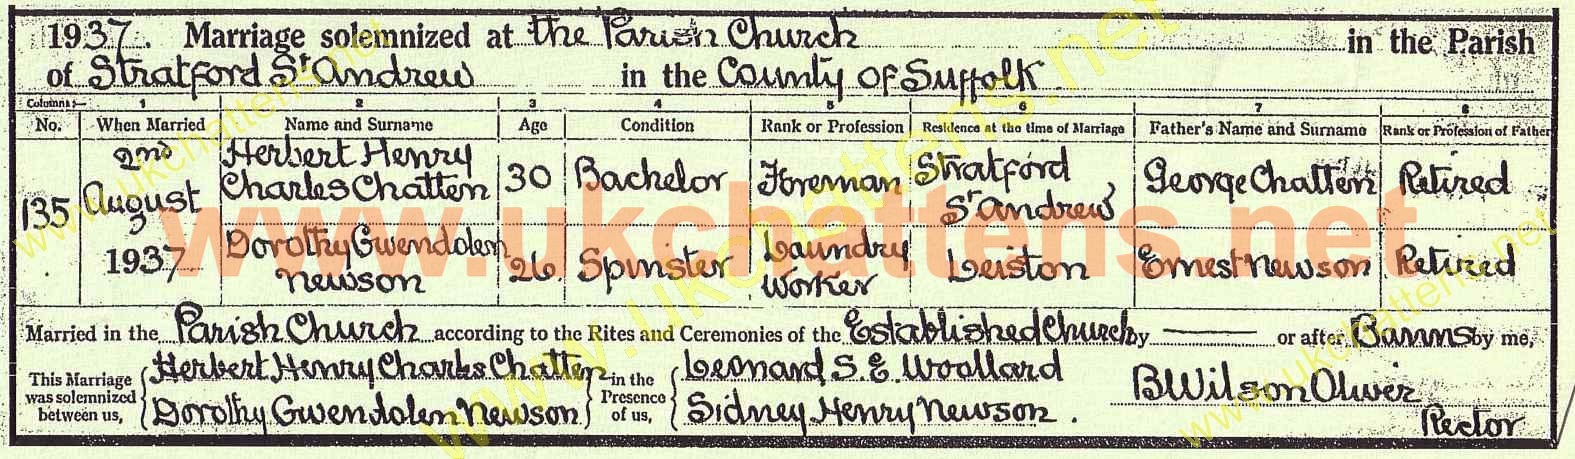 1937. Marriage solemnized at the Parish Church in the Parish
of Stratford St Andrew in the County of Suffolk.
Columns:— 1 2 3 4 5 6 7 8
No. When Married Name and Surname Age Condition Rank or Profession Residence at the time of Marriage Father's Name and Surname Rank or Profession of Father
135 2nd August 1937 Herbert Henry Charles Chatten 30 Bachelor Foreman Stratford St Andrew George Chatten Retired
Dorothy Gwendolen Newson 26 Spinster Laundry Worker Leiston Ernest Newson Retired
Married in the Parish Church according to the Rites and Ceremonies of the Established Church by ——— or after Banns by me,
This Marriage was solemnized between us, Herbert Henry Charles Chatten in the Presence of us, Leonard S. E. Woollard B Wilson Oliver
Dorothy Gwendolen Newson Sidney Henry Newson. Rector
www.ukchattens.net
www.ukchattens.net
www.ukchattens.net
www.ukchattens.net
www.ukchattens.net